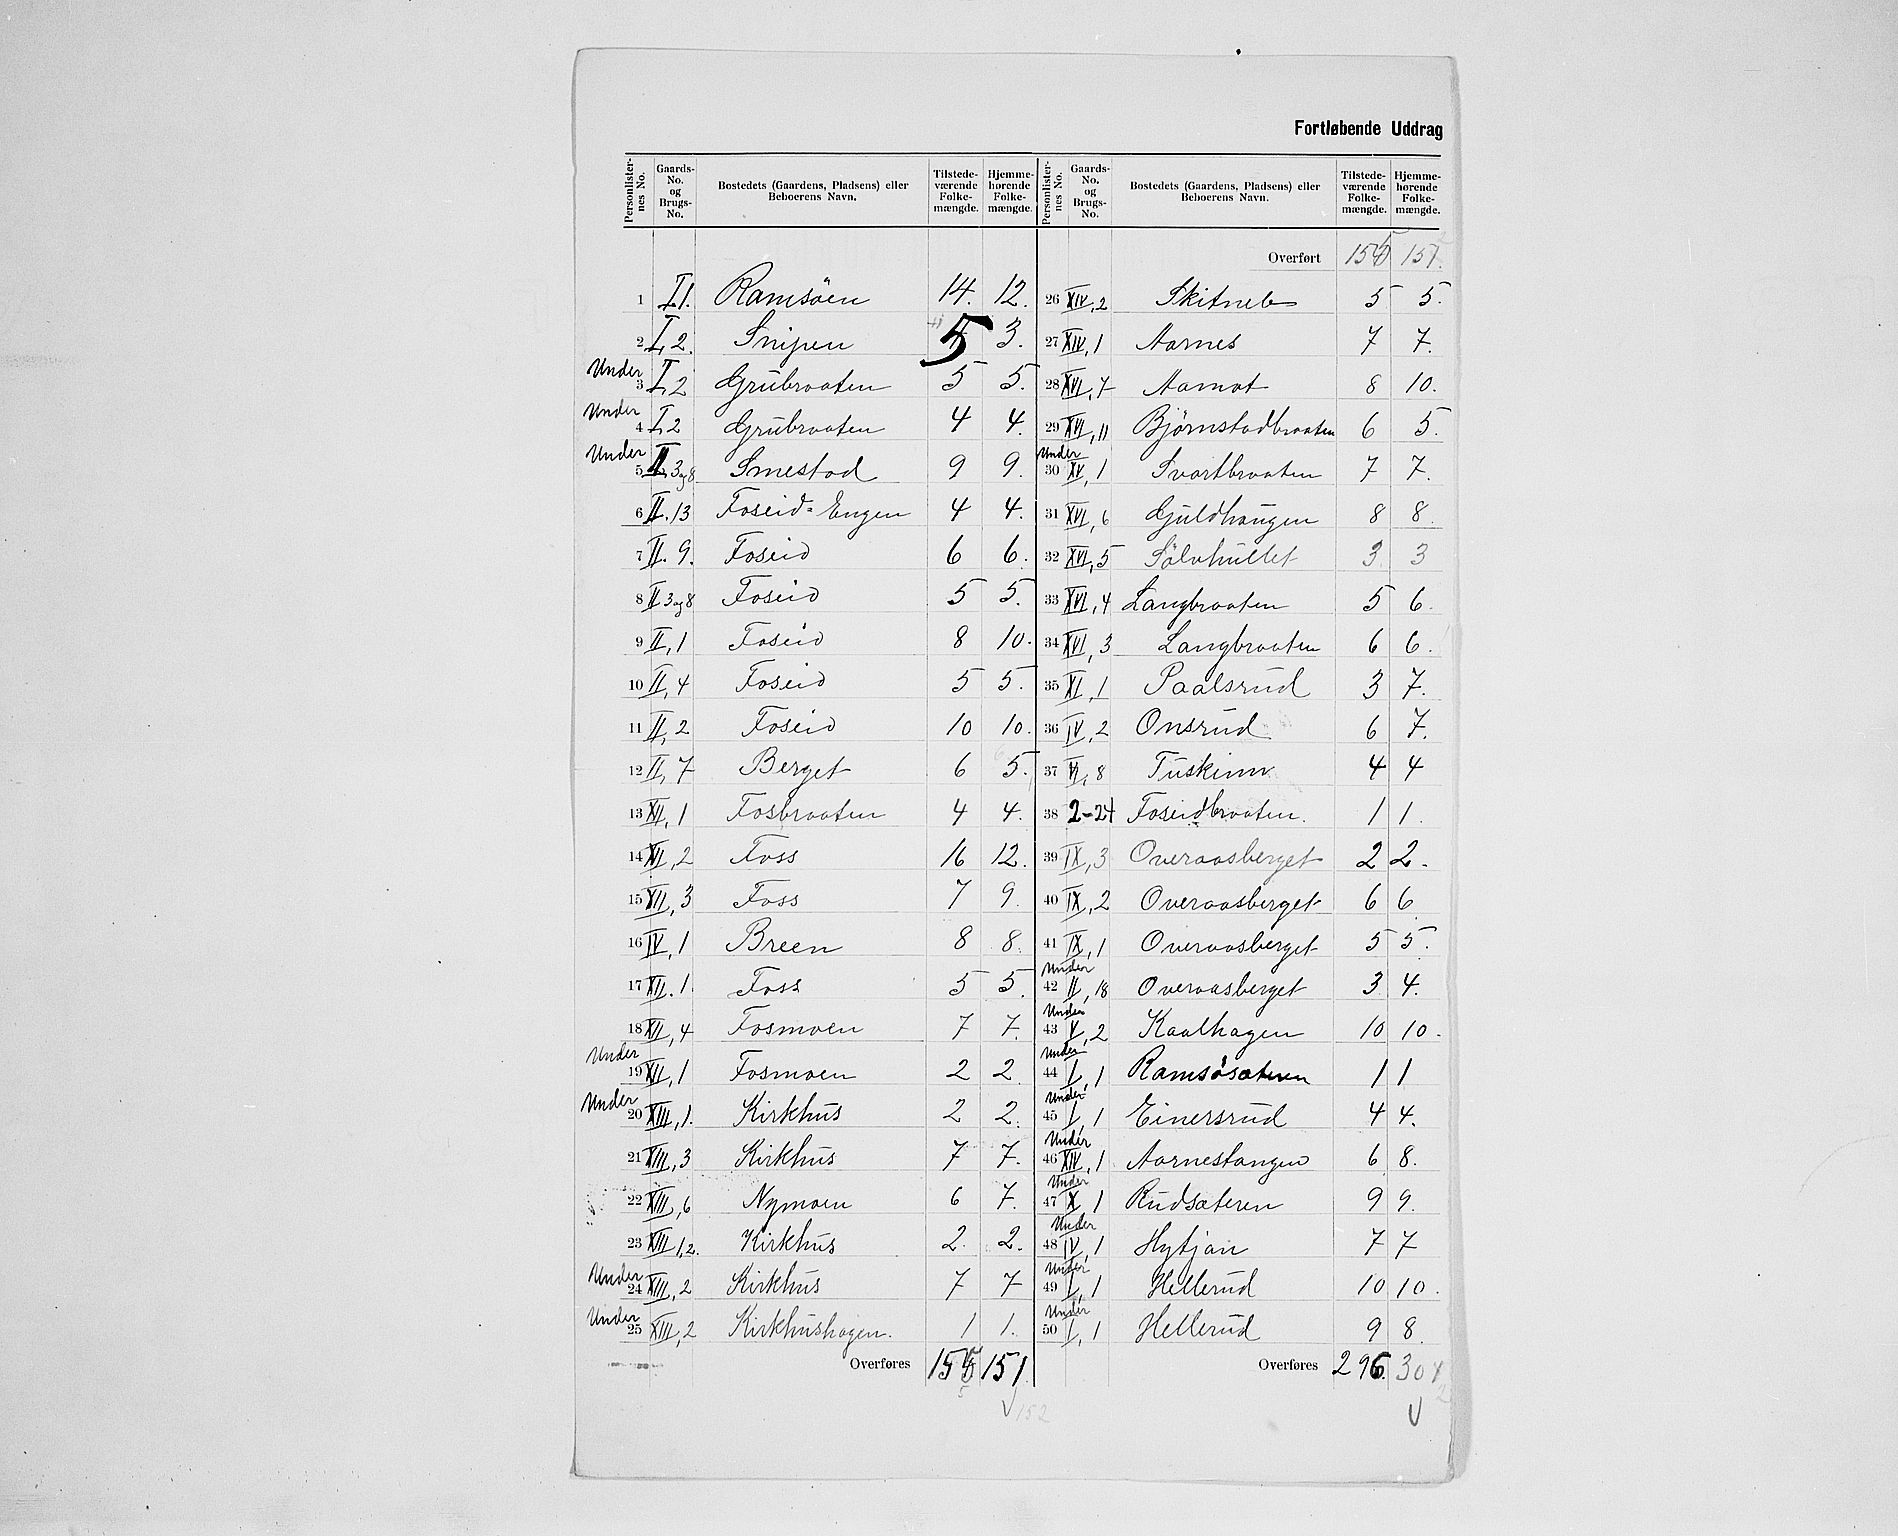 Fortløbende Uddrag
Personlisternes No. | Gaards-No. og Brugs-No. | Bostedets (Gaardens, Pladsens) eller Beboerens Navn. | Tilstedeværende Folkemængde. | Hjemmehørende Folkemængde. | Personlisternes No. | Gaards-No. og Brugs-No. | Bostedets (Gaardens, Pladsens) eller Beboerens Navn. | Tilstedeværende Folkemængde. | Hjemmehørende Folkemængde.
Overført 155 151.
1 I 1. Ramsöen 14. 12. | 26 XIV, 2 Skitneb 5 5.
2 I, 2. Snipen 5 3. | 27 XIV, 1 Aarnes 7 7.
Under 3 I, 2 Grubraaten 5 5. | 28 XVI, 7 Aamot 8 10.
Under 4 I, 2 Grubraaten 4 4. | 29 XVI, 11 Bjørnstadbraaten 6 5.
Under 5 II, 3 og 8 Smestad 9 9. | Under 30 XV, 1 Svartbraaten 7 7.
6 II. 13 Foseid-Engen 4 4. | 31 XVI, 6 Guldhaugen 8 8.
7 II. 9. Foseid 6 6. | 32 XVI, 5 Sölvhullet 3 3
8 II 3 og 8 Foseid 5 5. | 33 XVI, 4 Langbraaten 5 6.
9 II, 1 Foseid 8 10. | 34 XVI, 3 Langbraaten 6 6.
10 II, 4 Foseid 5 5. | 35 XI, 1 Paalsrud 3 7.
11 II, 2 Foseid 10 10. | 36 IV, 2 Onsrud 6 7.
12 II, 7 Berget 6 5. | 37 VI, 8 Tuskinn 4 4
13 XII, 1 Fosbraaten 4 4. | 38 2-24 Foseidbraaten. 1 1.
14 XII, 2 Foss 16 12. | 39 IX, 3 Overaasberget 2 2.
15 XII, 3 Foss 7 9. | 40 IX, 2 Overaasberget 6 6.
16 IV, 1 Breen 8 8. | 41 IX, 1 Overaasberget 5 5.
17 XII. 1. Foss 5 5. | Under 42 II, 18 Overaasberget 3 4.
18 XII, 4 Fosmoen 7 7. | Under 43 V, 2 Kaalhagen 10 10.
Under 19 XII, 1 Fosmoen 2 2. | Under 44 I, 1 Ramsösæteren 1 1
Under 20 XIII, 1. Kirkhus 2 2. | Under 45 I, 1 Einersrud 4 4.
21 XIII, 3 Kirkhus 7 7. | Under 46 XIV, 1 Aarnestangen 6 8.
22 XIII, 6 Nymoen 6 7. | Under 47 X, 1 Rudsæteren 9 9.
23 XIII 1, 2. Kirkhus 2. 2. | Under 48 IV, 1 Hytjan 7 7
Under 24 XIII, 2 Kirkhus 7 7 | Under 49 I, 1 Hellerud 10 10.
Under 25 XIII, 2 Kirkhushagen. 1 1. | Under 50 I, 1 Hellerud 9 8.
Overføres 155 151. | Overføres 296. 304
152